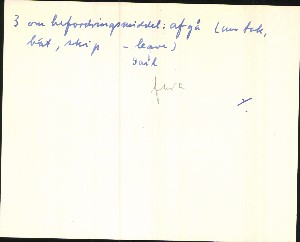 3 om befordringsmiddel: afgå (om tog,
båt, skip - leave)
sail
fara